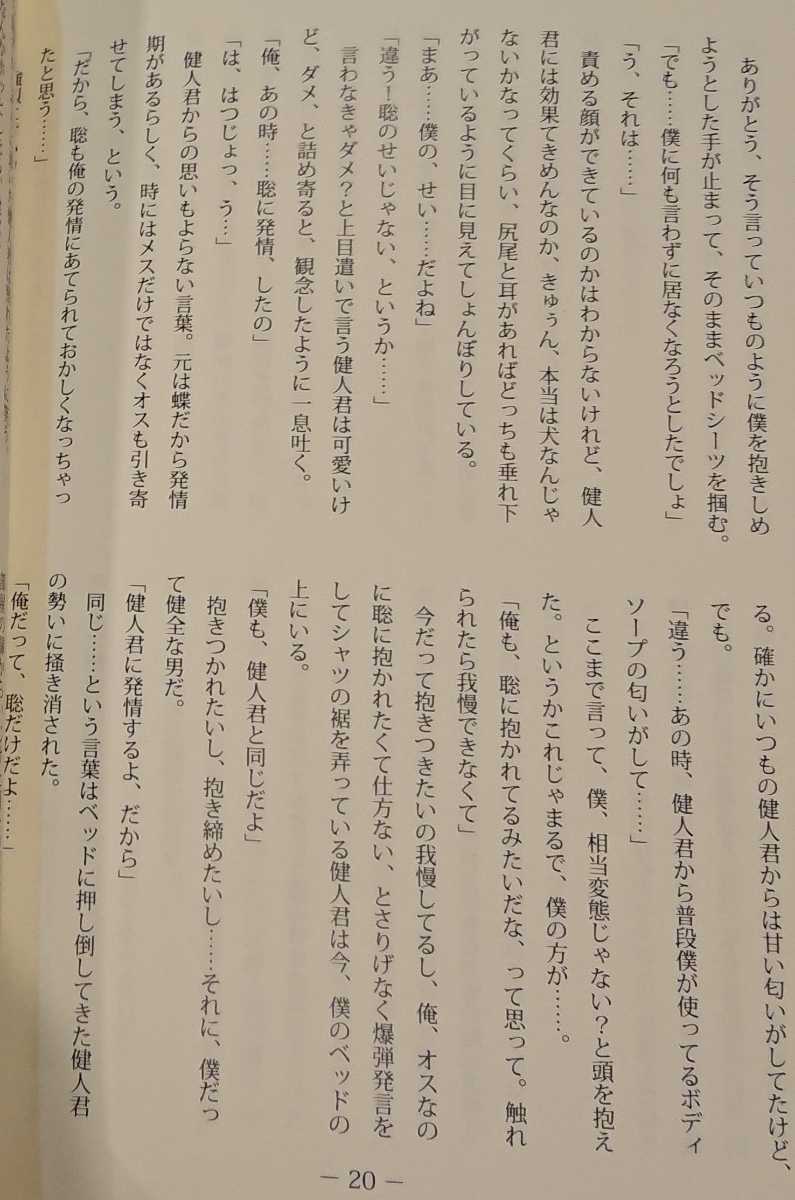 ありがとう、そう言っていつものように僕を抱きしめ
ようとした手が止まって、そのままベッドシーツを掴む。
「でも……僕に何も言わずに居なくなろうとしたでしょ」
「う、それは……」
責める顔ができているのかはわからないけれど、健人
君には効果てきめんなのか、きゅぅん、本当は犬なんじゃ
ないかなってくらい、尻尾と耳があればどっちも垂れ下
がっているように目に見えてしょんぼりしている。
「まあ……僕の、せい……だよね」
「違う！聡のせいじゃない、というか……」
言わなきゃダメ？と上目遣いで言う健人君は可愛いけ
ど、ダメ、と詰め寄ると、観念したように一息吐く。
「俺、あの時……聡に発情、したの」
「は、はつじょっ、う…」
健人君からの思いもよらない言葉。元は蝶だから発情
期があるらしく、時にはメスだけではなくオスも引き寄
せてしまう、という。
「だから、聡も俺の発情にあてられておかしくなっちゃっ
たと思う……」
る。確かにいつもの健人君からは甘い匂いがしてたけど、
でも。
「違う……あの時、健人君から普段僕が使ってるボディ
ソープの匂いがして……」
ここまで言って、僕、相当変態じゃない？と頭を抱え
た。というかこれじゃまるで、僕の方が……。
「俺も、聡に抱かれてるみたいだな、って思って。触れ
られたら我慢できなくて」
今だって抱きつきたいの我慢してるし、俺、オスなの
に聡に抱かれたくて仕方ない、とさりげなく爆弾発言を
してシャツの裾を弄っている健人君は今、僕のベッドの
上にいる。
「僕も、健人君と同じだよ」
抱きつかれたいし、抱き締めたいし……それに、僕だっ
て健全な男だ。
「健人君に発情するよ、だから」
同じ……という言葉はベッドに押し倒してきた健人君
の勢いに掻き消された。
「俺だって、聡だけだよ……」
－20－